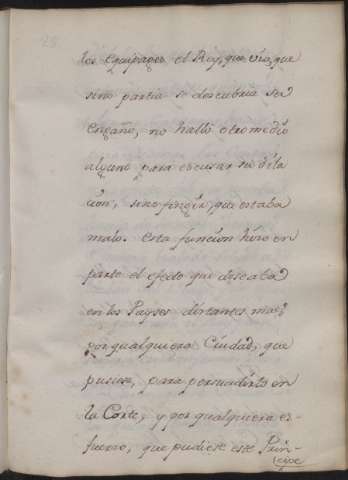 los equipages el Rey, que vio, que
sino partia se descubria ser
engaño, no halló otro medio
alguno para escusar su dila
cion, sino fingir, que estaba
malo. Esta funcion hizo en
parte el efecto que deseaba
en los Payses distantes, mas,
por qualquiera Ciudad, que
pusiese, para persuadirlo en
la Corte, y por qualquiera es-
fuerzo, que pudiese este Prin-
cipe